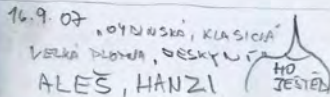 16.9.07 „OVINSKÁ, KLASICKÁ
VELKÁ PLOTNA, DESKYNÍ
ALEŠ, HANZI
HO
JEŠTĚD